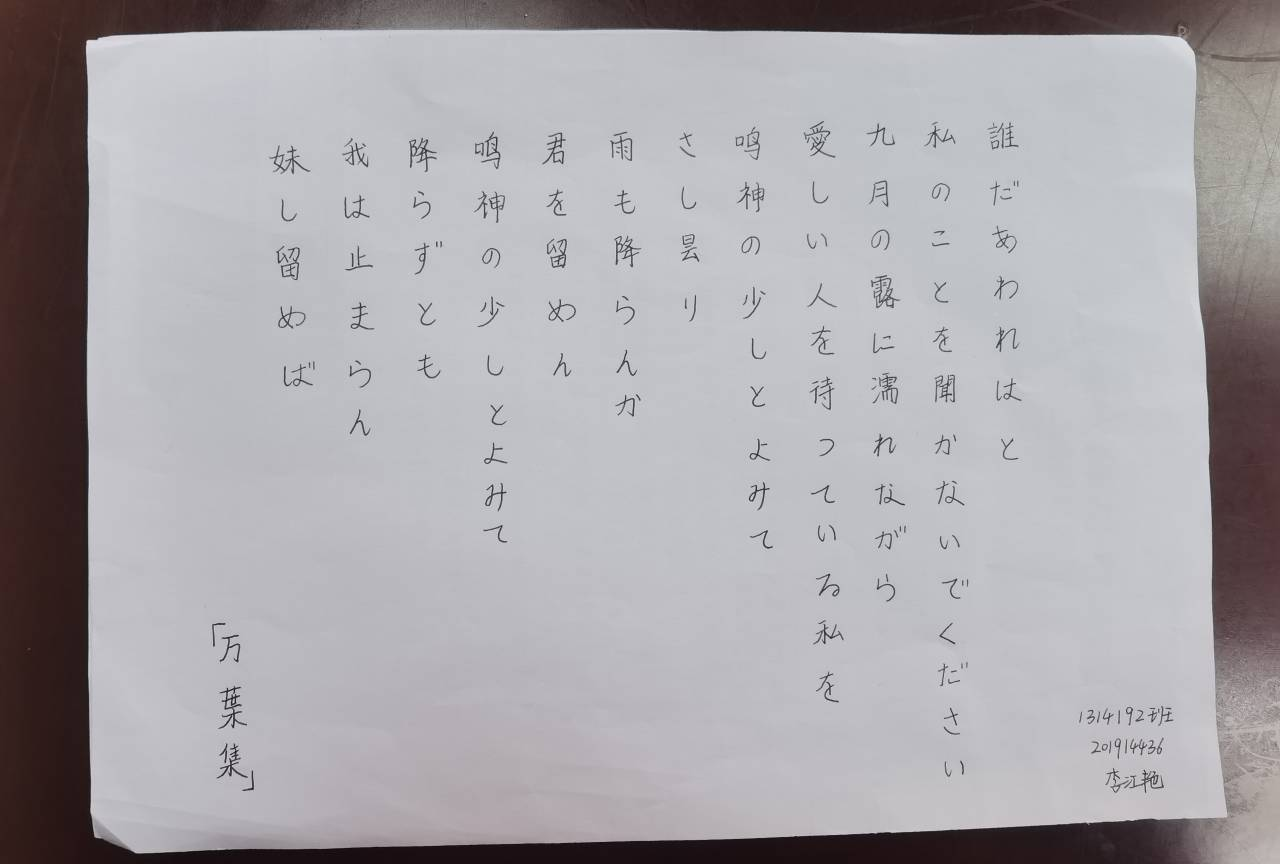 誰だあわれはと
私のことを聞かないでください
九月の露に濡れながら
愛しい人を待っている私を
鸣神の少しとよみて
さし昙り
雨も降らんか
君を留めん
鸣神の少しとよみて
降らずとも
我は止まらん
妹し留めば
「万葉集」
1314192班
201914436
李江艳